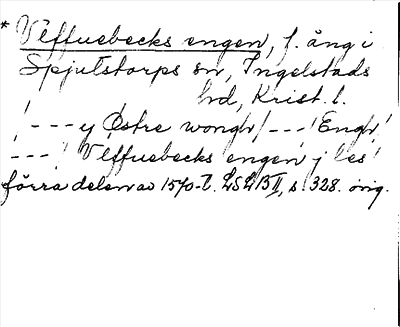 * Veffuebecks engen, f. äng i
Spjutstorps sn, Ingelstads
hd, Krist. l.
! - - - y Østre wongh / - - - ! Engh !
- - - ! Veffuebecks engen j les !
förra delen av 1570-t. LSLB II, s. 328. orig.